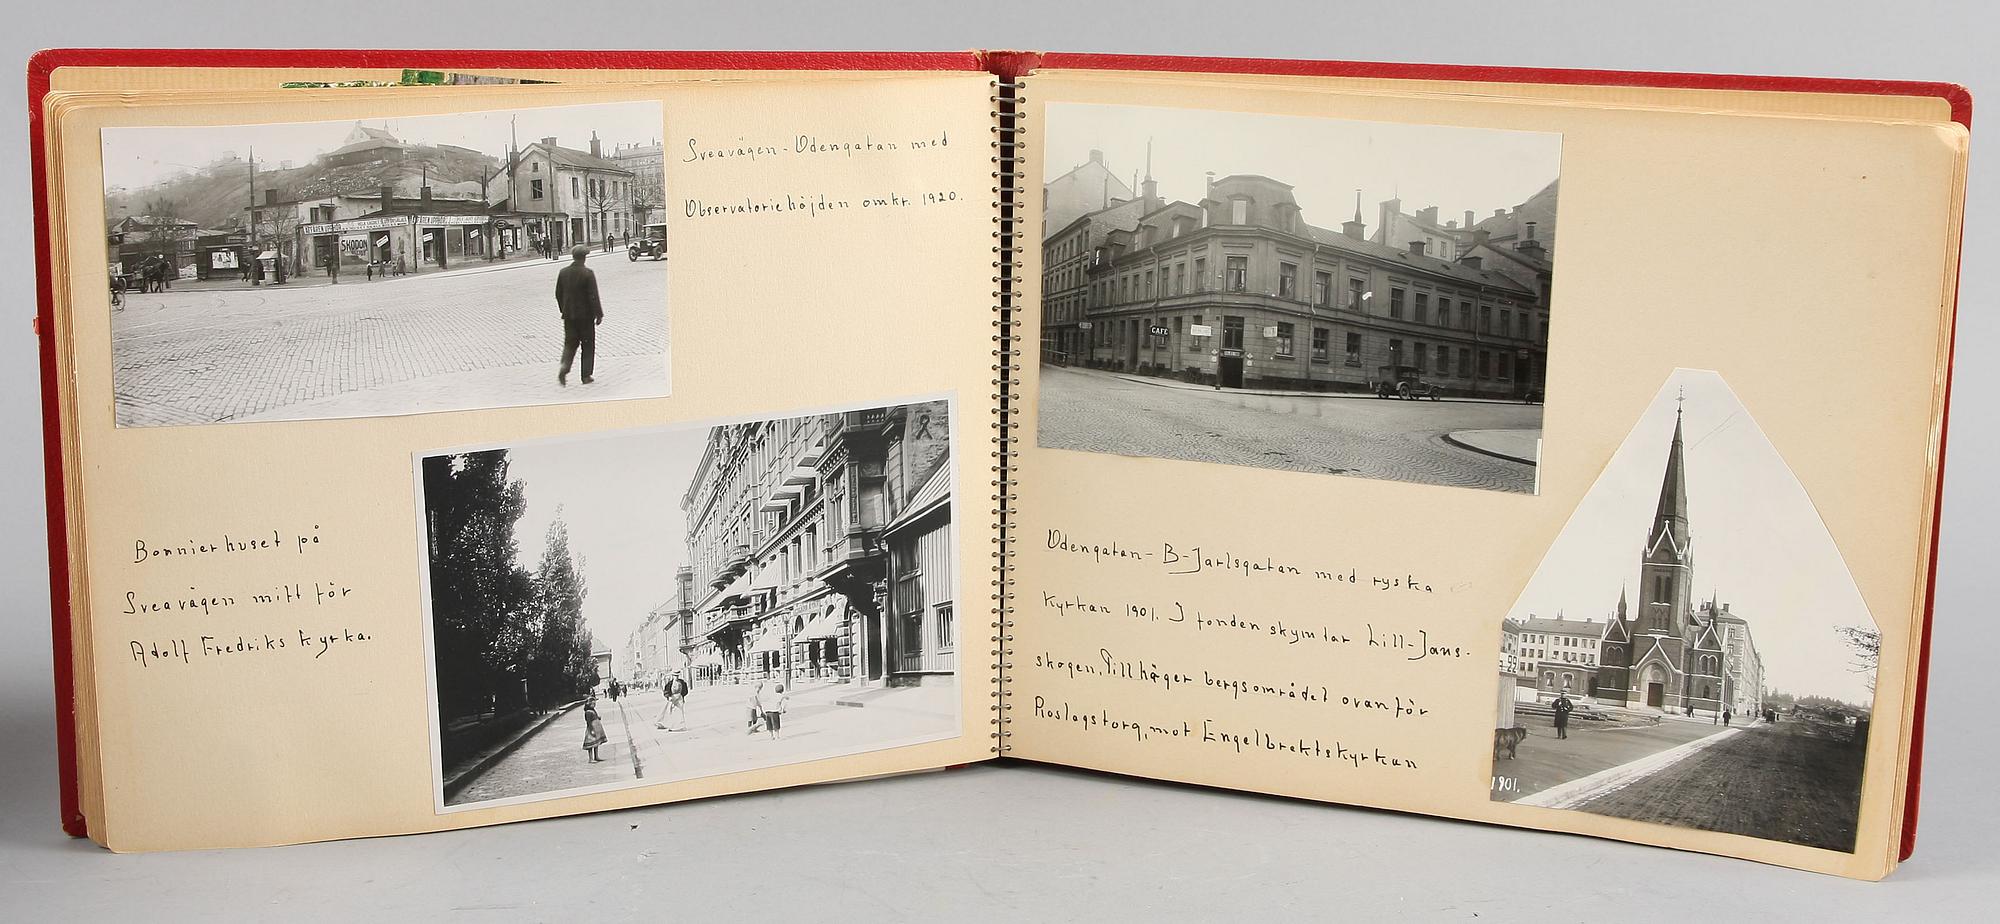 Sveavägen-Odengatan med
Observatoriehöjden omkr. 1920.
SKODON
Bonnierhuset på
Sveavägen mitt för
Adolf Fredriks Kyrka.
CAFÉ
Odengatan-B-Jarlsgatan med ryska
Kyrkan 1901. I fonden skymtar Lill-Jans-
skogen. Till höger bergsområdet ovanför
Roslagstorg, mot Engelbrektskyrkan
22
1901.